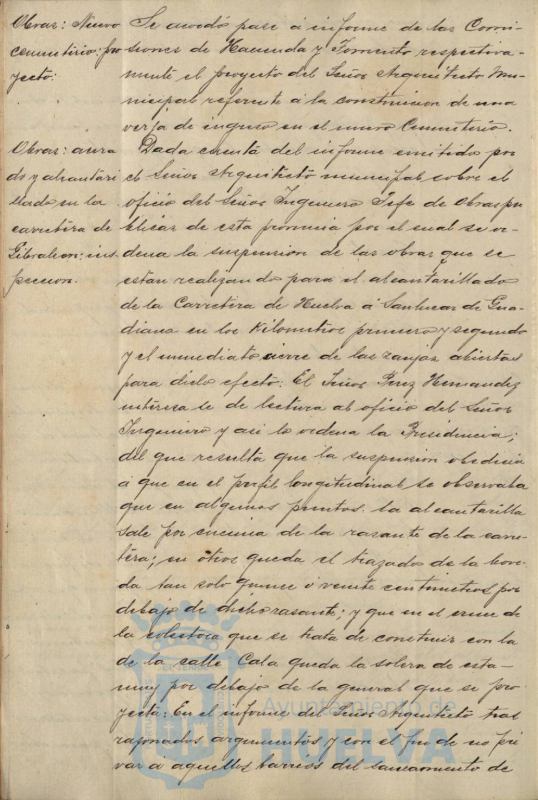 Obras: Nuevo
cementerio: pro
yecto:
Se acordó pase á informe de las Comi-
siones de Hacienda y Fomento respectiva-
mente el proyecto del Señor Arquitecto Mu-
nicipal referente á la construccion de una
verja de ingreso en el nuevo Cementerio.
Obras:
do y alcantari
llado en la
carretera de
Gibraleon: ins
peccion.
Dada cuenta del informe emitido por
el Señor Arquitecto municipal sobre el
oficio del Señor Ingeniero Jefe de Obras pu
blicas de esta provincia por el cual se or-
dena la suspension de las obras que se
estan realizando para el alcantarillado
de la Carretera de Huelva á Sanlucar de Gua-
diana en los Kilometros primero y segundo
y el inmediato cierre de las zanjas abiertas
para dicho efecto: El Señor Perez Hernandez
interesa se de lectura al oficio del Señor
Ingeniero y asi lo ordena la Presidencia;
del que resulta que la suspension obedecia
á que en el perfil longitudinal se observaba
que en algunos puntos la alcantarilla
sale por encima de la rasante de la carre-
tera; en otros queda el trazado de la bove-
da tan solo quince ó veinte centimetros por
debajo de dicha rasante; y que en el cruce de
la colectora que se trata de construir con la
de la calle Cala queda la solera de esta
muy por debajo de la general que se pro
yecta: En el informe del Señor Arquitecto tras
razonados argumentos y con el fin de no pri
var á aquellos barrios del saneamiento de
Ayuntamiento de
HUELVA